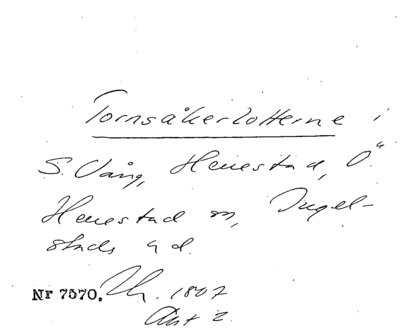 Tornsåkerlotterne i
S. Vång, Henestad, Ö.
Henestad sn, Ingel-
stads hd.
Nr 7570. 1807
Akt 2.